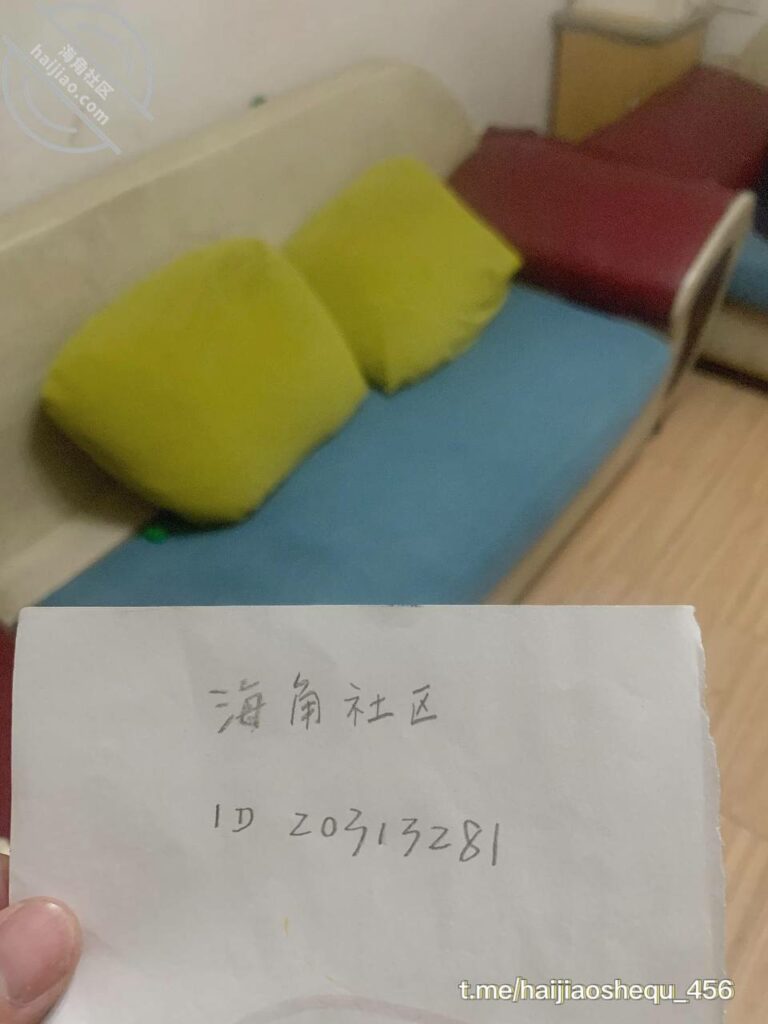 海角社区
haijiao.com
海角社区
ID 20313281
t.me/haijiaoshequ_456